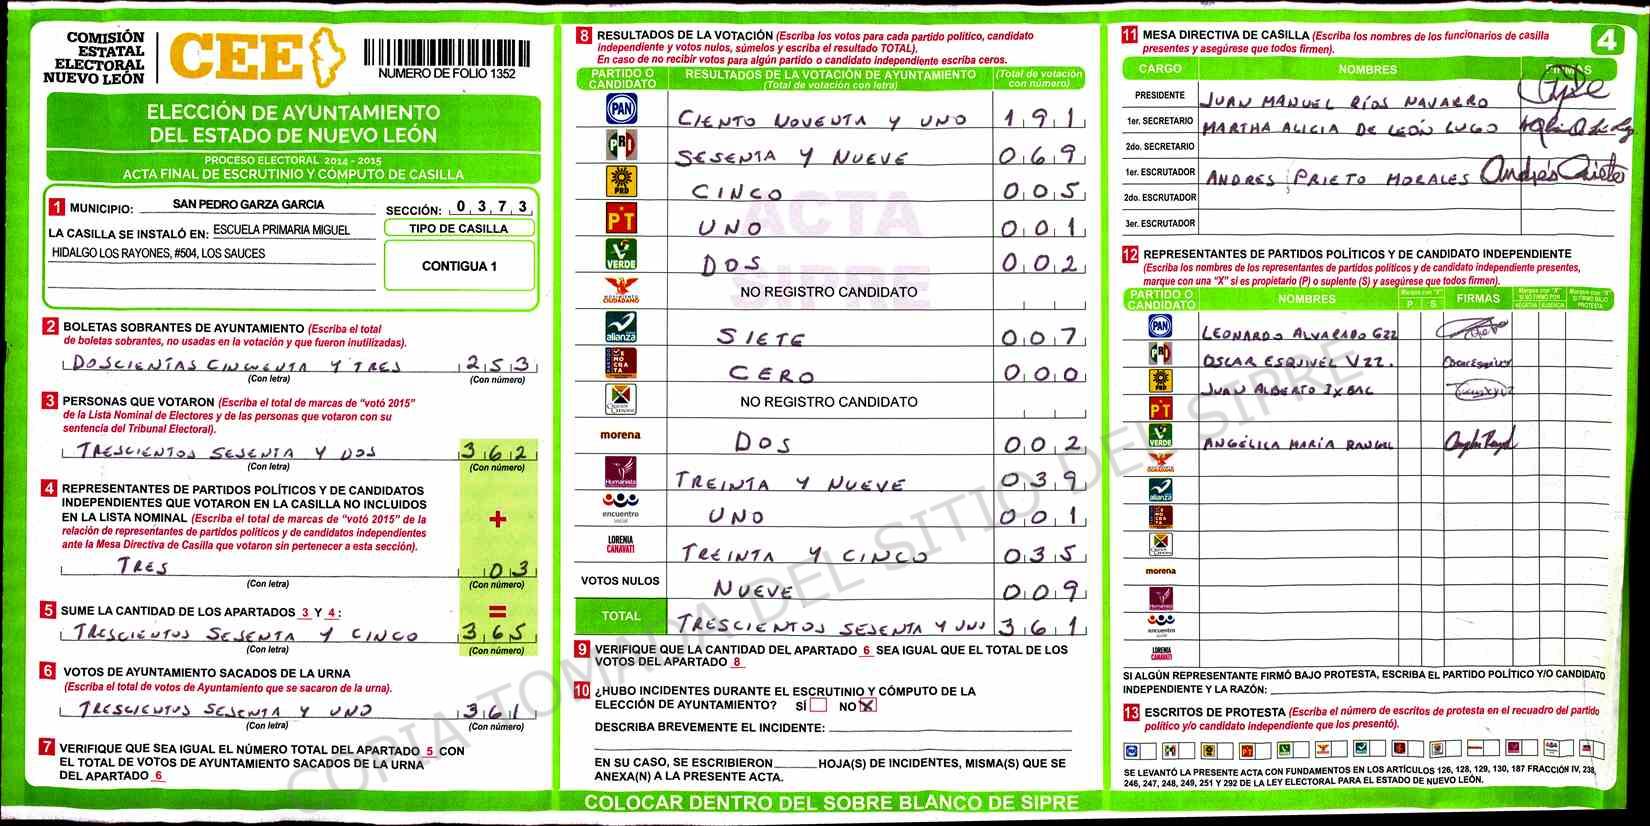 COMISIÓN
ESTATAL
ELECTORAL
NUEVO LEÓN
CEE
NUMERO DE FOLIO 1352
ELECCIÓN DE AYUNTAMIENTO
DEL ESTADO DE NUEVO LEÓN
PROCESO ELECTORAL 2014 - 2015
ACTA FINAL DE ESCRUTINIO Y CÓMPUTO DE CASILLA
1 MUNICIPIO: SAN PEDRO GARZA GARCIA
SECCIÓN: 0 3 7 3
LA CASILLA SE INSTALÓ EN: ESCUELA PRIMARIA MIGUEL
HIDALGO LOS RAYONES, #504, LOS SAUCES
TIPO DE CASILLA
CONTIGUA 1
2 BOLETAS SOBRANTES DE AYUNTAMIENTO (Escriba el total
de boletas sobrantes, no usadas en la votación y que fueron inutilizadas).
DOSCIENTAS CINCUENTA Y TRES 2 5 3
(Con letra) (Con número)
3 PERSONAS QUE VOTARON (Escriba el total de marcas de "votó 2015"
de la Lista Nominal de Electores y de las personas que votaron con su
sentencia del Tribunal Electoral).
TRESCIENTOS SESENTA Y DOS 3 6 2
(Con letra) (Con número)
4 REPRESENTANTES DE PARTIDOS POLÍTICOS Y DE CANDIDATOS
INDEPENDIENTES QUE VOTARON EN LA CASILLA NO INCLUIDOS
EN LA LISTA NOMINAL (Escriba el total de marcas de "votó 2015" de la
relación de representantes de partidos políticos y de candidatos independientes
ante la Mesa Directiva de Casilla que votaron sin pertenecer a esta sección).
+
TRES 0 3
(Con letra) (Con número)
5 SUME LA CANTIDAD DE LOS APARTADOS 3 Y 4 : =
TRESCIENTOS SESENTA Y CINCO 3 6 5
(Con letra) (Con número)
6 VOTOS DE AYUNTAMIENTO SACADOS DE LA URNA
(Escriba el total de votos de Ayuntamiento que se sacaron de la urna).
TRESCIENTOS SESENTA Y UNO 3 6 1
(Con letra) (Con número)
7 VERIFIQUE QUE SEA IGUAL EL NÚMERO TOTAL DEL APARTADO 5 CON
EL TOTAL DE VOTOS DE AYUNTAMIENTO SACADOS DE LA URNA
DEL APARTADO 6
8 RESULTADOS DE LA VOTACIÓN (Escriba los votos para cada partido político, candidato
independiente y votos nulos, súmelos y escriba el resultado TOTAL).
En caso de no recibir votos para algún partido o candidato independiente escriba ceros.
PARTIDO O CANDIDATO RESULTADOS DE LA VOTACIÓN DE AYUNTAMIENTO (Total de votación con letra) (Total de votación con número)
PAN CIENTO NOVENTA Y UNO 1 9 1
PRI SESENTA Y NUEVE 0 6 9
PRD CINCO 0 0 5
PT UNO 0 0 1
VERDE DOS 0 0 2
MOVIMIENTO CIUDADANO NO REGISTRO CANDIDATO
alianza SIETE 0 0 7
DEMOCRATA CERO 0 0 0
NO REGISTRO CANDIDATO
morena DOS 0 0 2
Humanista TREINTA Y NUEVE 0 3 9
encuentro social UNO 0 0 1
LORENIA CANAVATI TREINTA Y CINCO 0 3 5
VOTOS NULOS NUEVE 0 0 9
TOTAL TRESCIENTOS SESENTA Y UNO 3 6 1
ACTA
SIPRE
9 VERIFIQUE QUE LA CANTIDAD DEL APARTADO 6 SEA IGUAL QUE EL TOTAL DE LOS
VOTOS DEL APARTADO 8
10 ¿HUBO INCIDENTES DURANTE EL ESCRUTINIO Y CÓMPUTO DE LA
ELECCIÓN DE AYUNTAMIENTO? SÍ NO X
DESCRIBA BREVEMENTE EL INCIDENTE:
EN SU CASO, SE ESCRIBIERON HOJA(S) DE INCIDENTES, MISMA(S) QUE SE
ANEXA(N) A LA PRESENTE ACTA.
COLOCAR DENTRO DEL SOBRE BLANCO DE SIPRE
11 MESA DIRECTIVA DE CASILLA (Escriba los nombres de los funcionarios de casilla
presentes y asegúrese que todos firmen).
4
CARGO NOMBRES FIRMAS
PRESIDENTE JUAN MANUEL RÍOS NAVARRO
1er. SECRETARIO MARTHA ALICIA DE LEÓN LUGO
2do. SECRETARIO
1er. ESCRUTADOR ANDRES PRIETO MORALES Andrés Prieto
2do. ESCRUTADOR
3er. ESCRUTADOR
12 REPRESENTANTES DE PARTIDOS POLÍTICOS Y DE CANDIDATO INDEPENDIENTE
(Escriba los nombres de los representantes de partidos políticos y de candidato independiente presentes,
marque con una "X" si es propietario (P) o suplente (S) y asegúrese que todos firmen).
PARTIDO O CANDIDATO NOMBRES P S FIRMAS
PAN LEONARDO ALVARADO GZZ
PRI OSCAR ESQUIVEL VZZ.
PRD JUAN ALBERTO
PT
VERDE ANGÉLICA MARÍA RANGEL
alianza
morena
Humanista
encuentro social
LORENIA CANAVATI
SI ALGÚN REPRESENTANTE FIRMÓ BAJO PROTESTA, ESCRIBA EL PARTIDO POLÍTICO Y/O CANDIDATO
INDEPENDIENTE Y LA RAZÓN:
13 ESCRITOS DE PROTESTA (Escriba el número de escritos de protesta en el recuadro del partido
político y/o candidato independiente que los presentó).
SE LEVANTÓ LA PRESENTE ACTA CON FUNDAMENTOS EN LOS ARTÍCULOS 126, 128, 129, 130, 187 FRACCIÓN IV, 238,
246, 247, 248, 249, 251 Y 292 DE LA LEY ELECTORAL PARA EL ESTADO DE NUEVO LEÓN.
COPIA TOMADA DEL SITIO DEL SIPRE